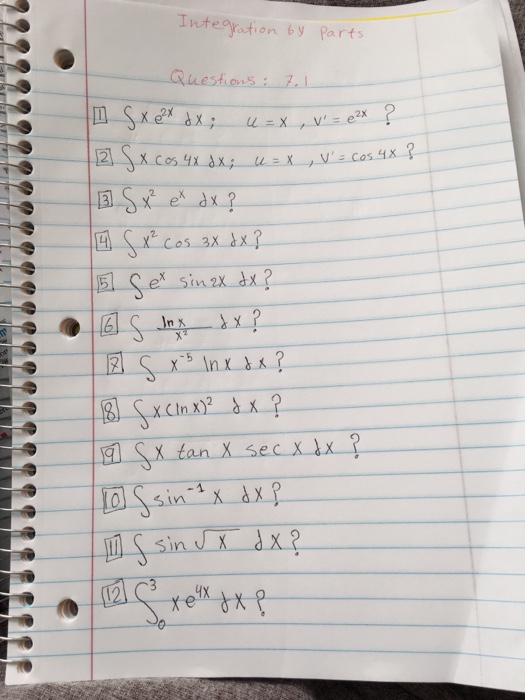 Integration by Parts
Questions: 7.1
1 ∫ x e²ˣ dx; u = x, v' = e²ˣ ?
2 ∫ x cos 4x dx; u = x, v' = cos 4x ?
3 ∫ x² eˣ dx ?
4 ∫ x² cos 3x dx ?
5 ∫ eˣ sin 2x dx ?
6 ∫ ln x / x² dx ?
7 ∫ x⁻⁵ ln x dx ?
8 ∫ x (ln x)² dx ?
9 ∫ x tan x sec x dx ?
10 ∫ sin⁻¹ x dx ?
11 ∫ sin √x dx ?
12 ∫₀³ x e⁴ˣ dx ?